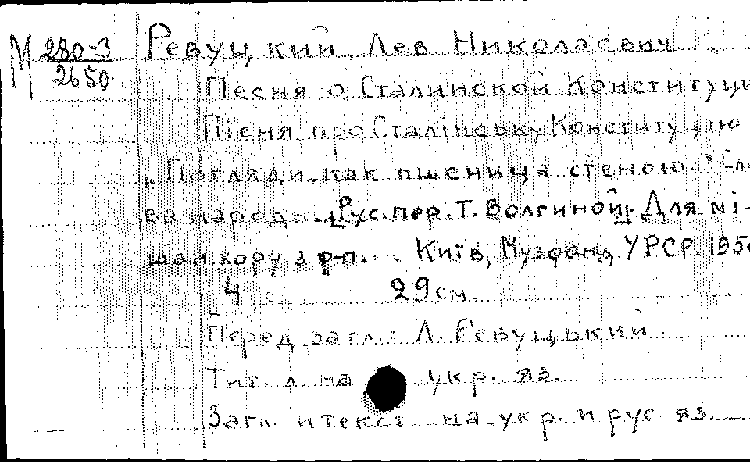 М 280-3
2650
Ревуцкий, Лев Николаевич
Песня о Сталинской Конституци
Пісня про Сталінську Конституцію
„Погляди, как пшеница стеною" Сло-
ва народн. Рус. пер. Т. Волгиной. Для мі-
шан. хору з ф-п. Київ, Музфонд УРСР. 195
4 с. 29 см.
Перед загл.: Л. Ревуцький
Тит. л. на укр. яз.
Загл. и текст на укр. и рус. яз.